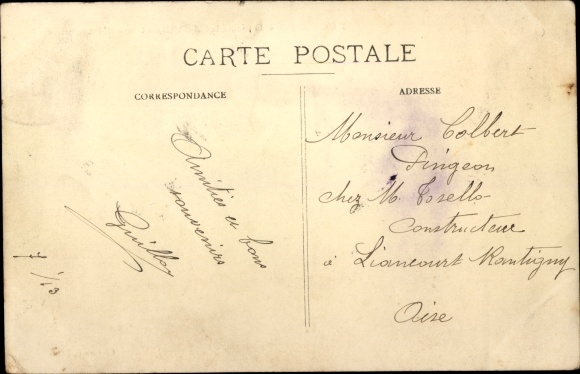 CARTE POSTALE
CORRESPONDANCE
Amitiés et bons
souvenirs
Guillou
ADRESSE
Monsieur Colbert
Pingeon
chez M. Tosello
Constructeur
à Liancourt Rantigny
Oise